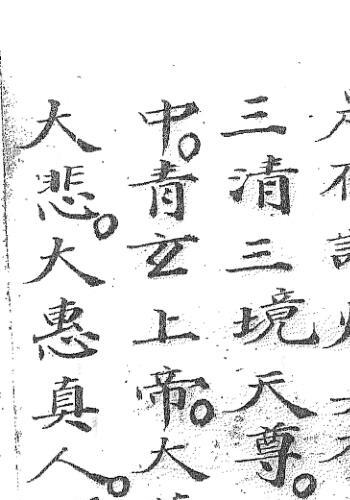 三清三境天尊。
中。青玄上帝。大
大悲。大惠真人。